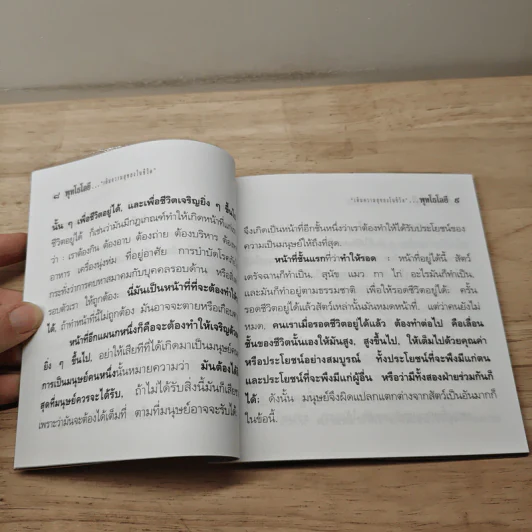 ๘ พุทโธโลยี ...
นั้น ๆ เพื่อชีวิตอยู่ได้, และเพื่อชีวิตเจริญยิ่ง ๆ ขึ้นไป
ชีวิตอยู่ได้ ก็เช่นว่ามันมีกฎเกณฑ์ทำให้เกิดหน้าที่
ว่า : เราต้องกิน ต้องอาบ ต้องถ่าย ต้องบริหาร ต้อง
อาหาร เครื่องนุ่งห่ม ที่อยู่อาศัย การบำบัดโรคภัย
กระทั่งว่าการคบหาสมาคมกับบุคคลรอบด้าน หรือสิ่ง
รอบตัวเรา ให้ถูกต้อง: นี้มันเป็นหน้าที่ที่จะต้องทำให้
ได้, ถ้าทำหน้าที่นี้ไม่ถูกต้อง มันอาจจะตายหรือเกือบ
หน้าที่อีกแผนกหนึ่งก็คือจะต้องทำให้เจริญด้วย
ยิ่ง ๆ ขึ้นไป, อย่าให้เสียทีที่ได้เกิดมาเป็นมนุษย์
การเป็นมนุษย์คนหนึ่งนั้นหมายความว่า มันต้องได้
สุดที่มนุษย์ควรจะได้รับ, ถ้าไม่ได้รับสิ่งนี้มันก็เสียที
เพราะว่ามันจะต้องได้เต็มที่ ตามที่มนุษย์อาจจะรับได้
... พุทโธโลยี ๙
จึงเกิดเป็นหน้าที่อีกชั้นหนึ่งว่าเราต้องทำให้ได้รับประโยชน์ของ
ความเป็นมนุษย์ให้ถึงที่สุด.
หน้าที่ชั้นแรกที่ว่าทำให้รอด : หน้าที่อยู่ได้นี้, สัตว์
เดรัจฉานก็ทำเป็น, สุนัข แมว กา ไก่ อะไรมันก็ทำเป็น,
และมันก็ทำอยู่ตามธรรมชาติ เพื่อให้รอดชีวิตอยู่ได้; ครั้น
รอดชีวิตอยู่ได้แล้วสัตว์เหล่านั้นมันหมดหน้าที่, แต่ว่าคนยังไม่
หมด, คนเราเมื่อรอดชีวิตอยู่ได้แล้ว ต้องทำต่อไป คือเลื่อน
ชั้นของชีวิตนั้นเองให้มันสูง, สูงขึ้นไป, ให้เต็มไปด้วยคุณค่า
หรือประโยชน์อย่างสมบูรณ์ ทั้งประโยชน์ที่จะพึงมีแก่ตน
และประโยชน์ที่จะพึงมีแก่ผู้อื่น หรือว่ามีทั้งสองฝ่ายร่วมกันก็
ได้; ดังนั้น มนุษย์จึงผิดแปลกแตกต่างจากสัตว์เป็นอันมากก็
ในข้อนี้.